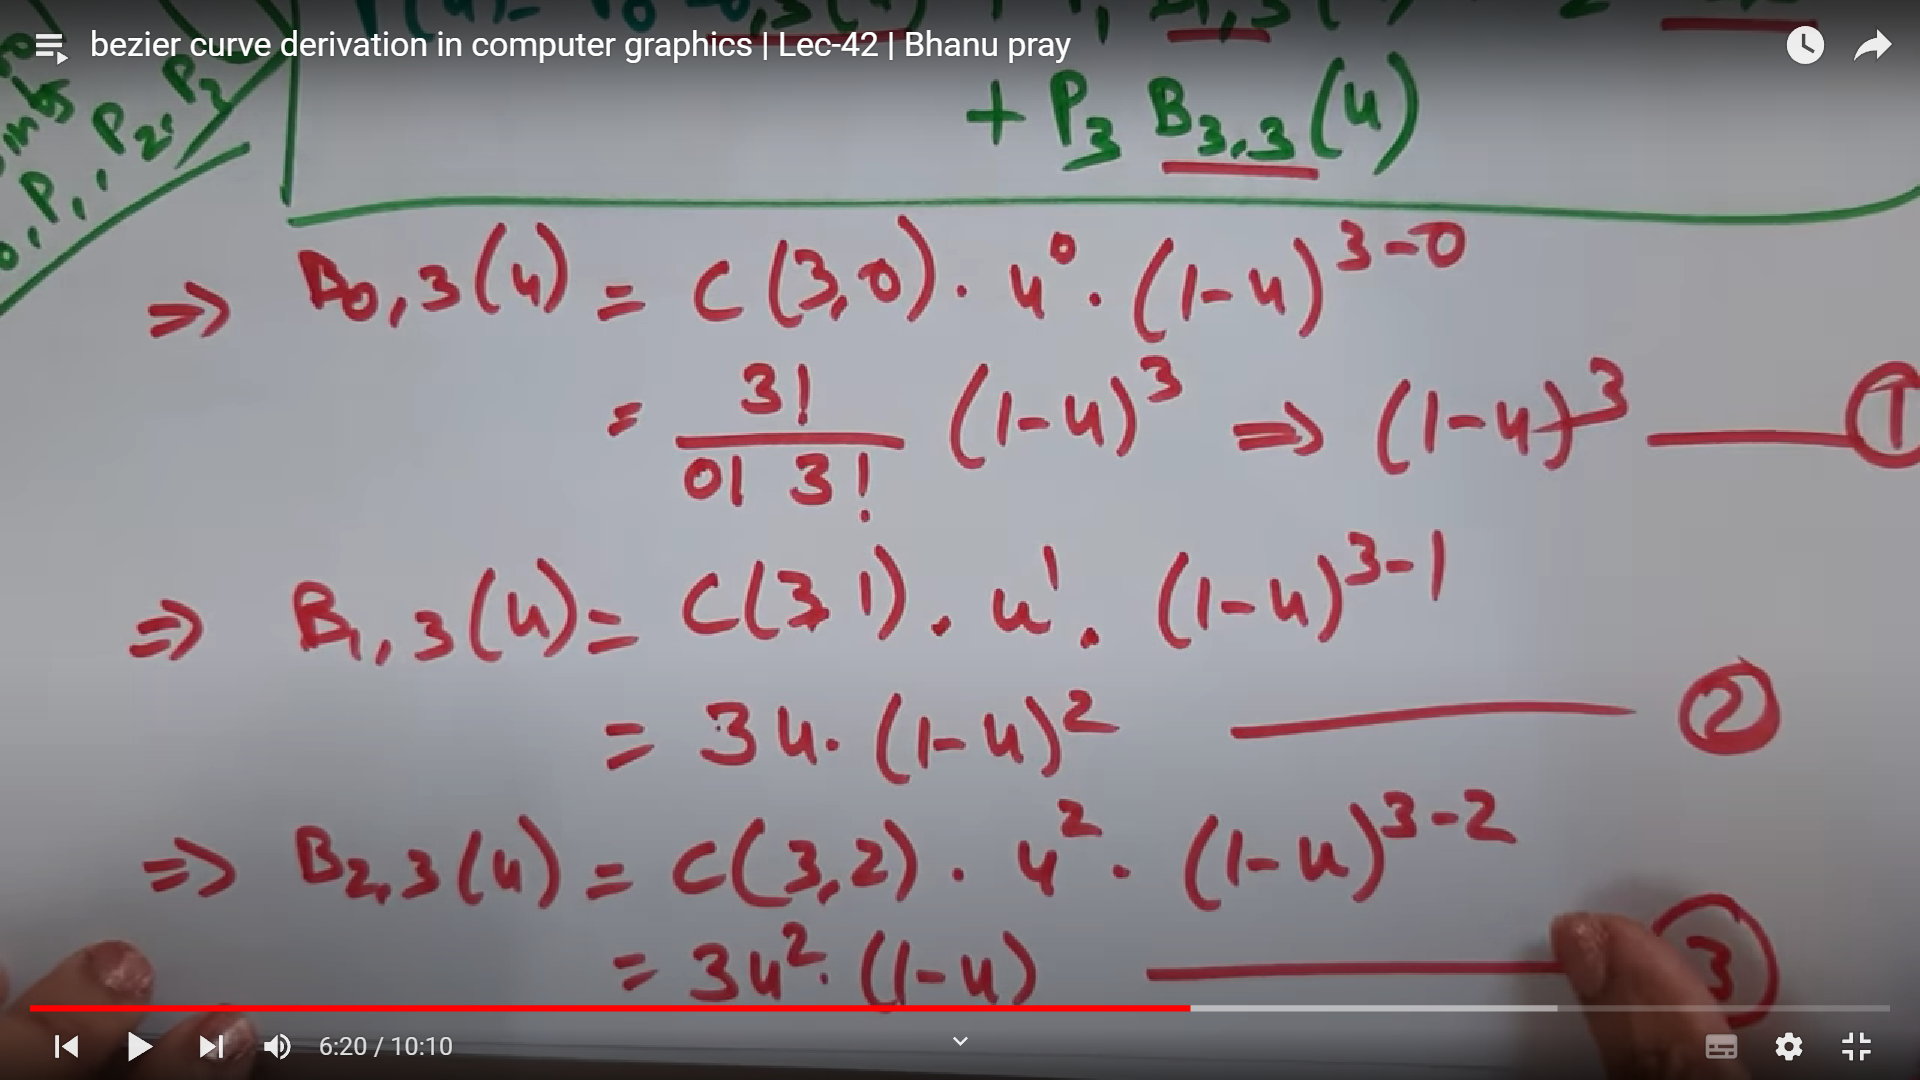 bezier curve derivation in computer graphics | Lec-42 | Bhanu pray
+ P₃ B₃,₃(u)
P₁, P₂, P₃
⇒ B₀,₃(u) = C(3,0) · u⁰ · (1-u)³⁻⁰
= 3! / 0! 3! (1-u)³ ⇒ (1-u)³ —— ①
⇒ B₁,₃(u) = C(3,1) · u¹ · (1-u)³⁻¹
= 3u · (1-u)² —— ②
⇒ B₂,₃(u) = C(3,2) · u² · (1-u)³⁻²
= 3u² · (1-u) —— ③
6:20 / 10:10